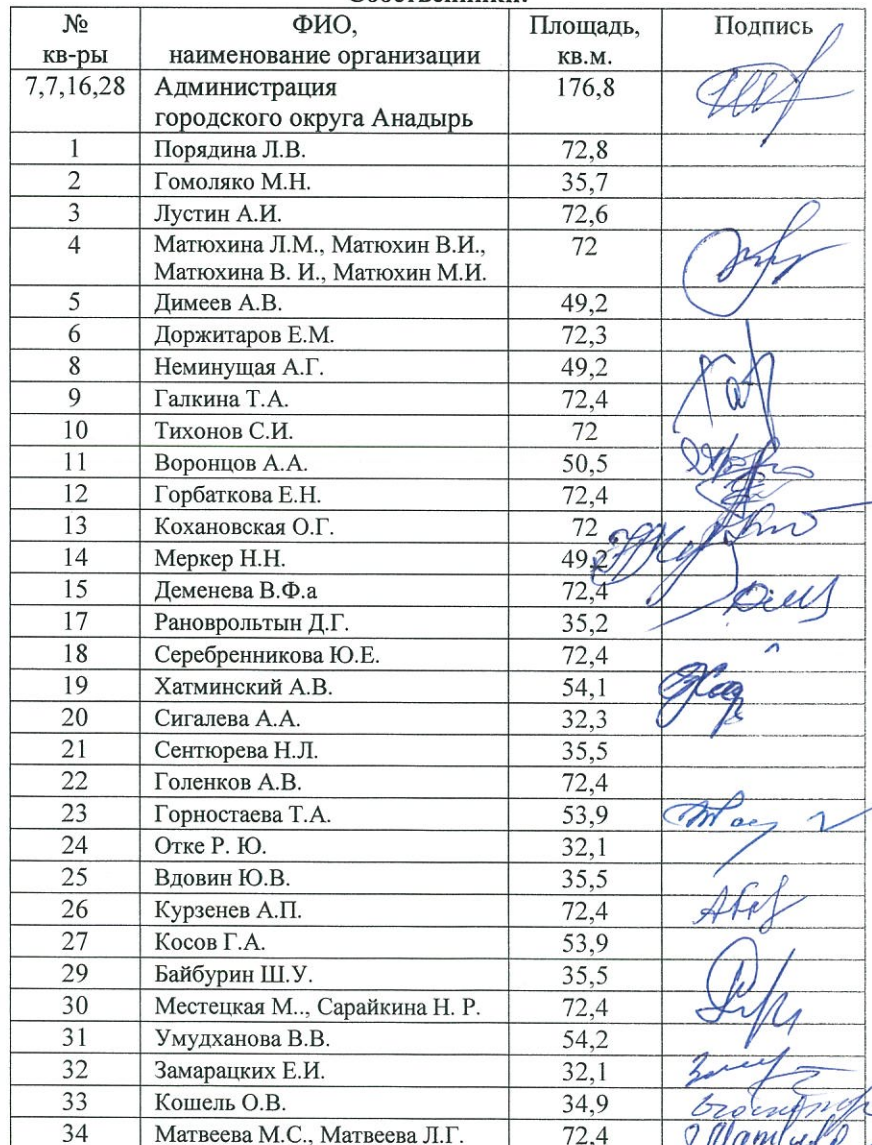 Собственники:
№ кв-ры ФИО, наименование организации Площадь, кв.м. Подпись
7,7,16,28 Администрация городского округа Анадырь 176,8
1 Порядина Л.В. 72,8
2 Гомоляко М.Н. 35,7
3 Лустин А.И. 72,6
4 Матюхина Л.М., Матюхин В.И., Матюхина В. И., Матюхин М.И. 72
5 Димеев А.В. 49,2
6 Доржитаров Е.М. 72,3
8 Неминущая А.Г. 49,2
9 Галкина Т.А. 72,4
10 Тихонов С.И. 72
11 Воронцов А.А. 50,5
12 Горбаткова Е.Н. 72,4
13 Кохановская О.Г. 72
14 Меркер Н.Н. 49,2
15 Деменева В.Ф.а 72,4
17 Рановрольтын Д.Г. 35,2
18 Серебренникова Ю.Е. 72,4
19 Хатминский А.В. 54,1
20 Сигалева А.А. 32,3
21 Сентюрева Н.Л. 35,5
22 Голенков А.В. 72,4
23 Горностаева Т.А. 53,9
24 Отке Р. Ю. 32,1
25 Вдовин Ю.В. 35,5
26 Курзенев А.П. 72,4
27 Косов Г.А. 53,9
29 Байбурин Ш.У. 35,5
30 Местецкая М.., Сарайкина Н. Р. 72,4
31 Умудханова В.В. 54,2
32 Замарацких Е.И. 32,1
33 Кошель О.В. 34,9
34 Матвеева М.С., Матвеева Л.Г. 72,4